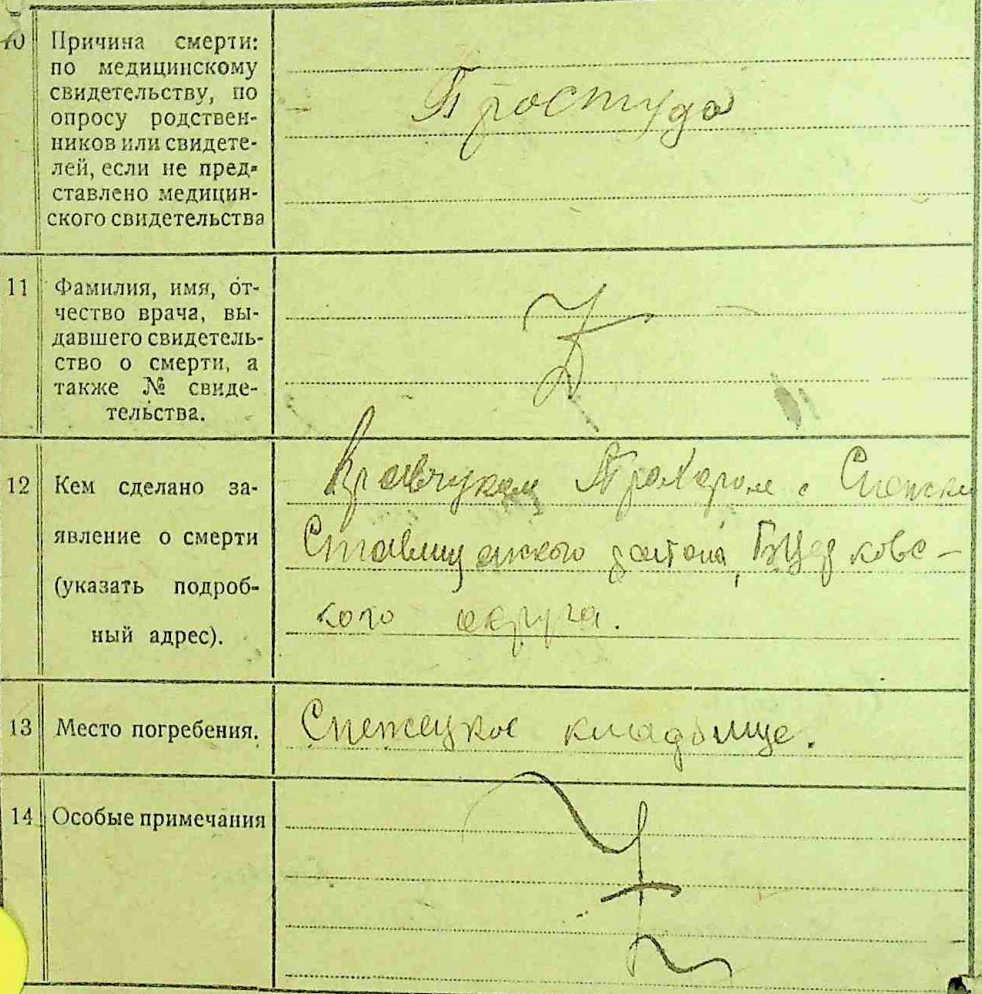 10 Причина смерти:
по медицинскому
свидетельству, по
опросу родствен-
ников или свидете-
лей, если не пред-
ставлено медицин-
ского свидетельства
Простуда
11 Фамилия, имя, от-
чество врача, вы-
давшего свидетель-
ство о смерти, а
также № свиде-
тельства.
12 Кем сделано за-
явление о смерти
(указать подроб-
ный адрес).
Кравчуком Прохором с.
Ставищанского района, БЦерковс-
кого округа.
13 Место погребения.
кладбище.
14 Особые примечания